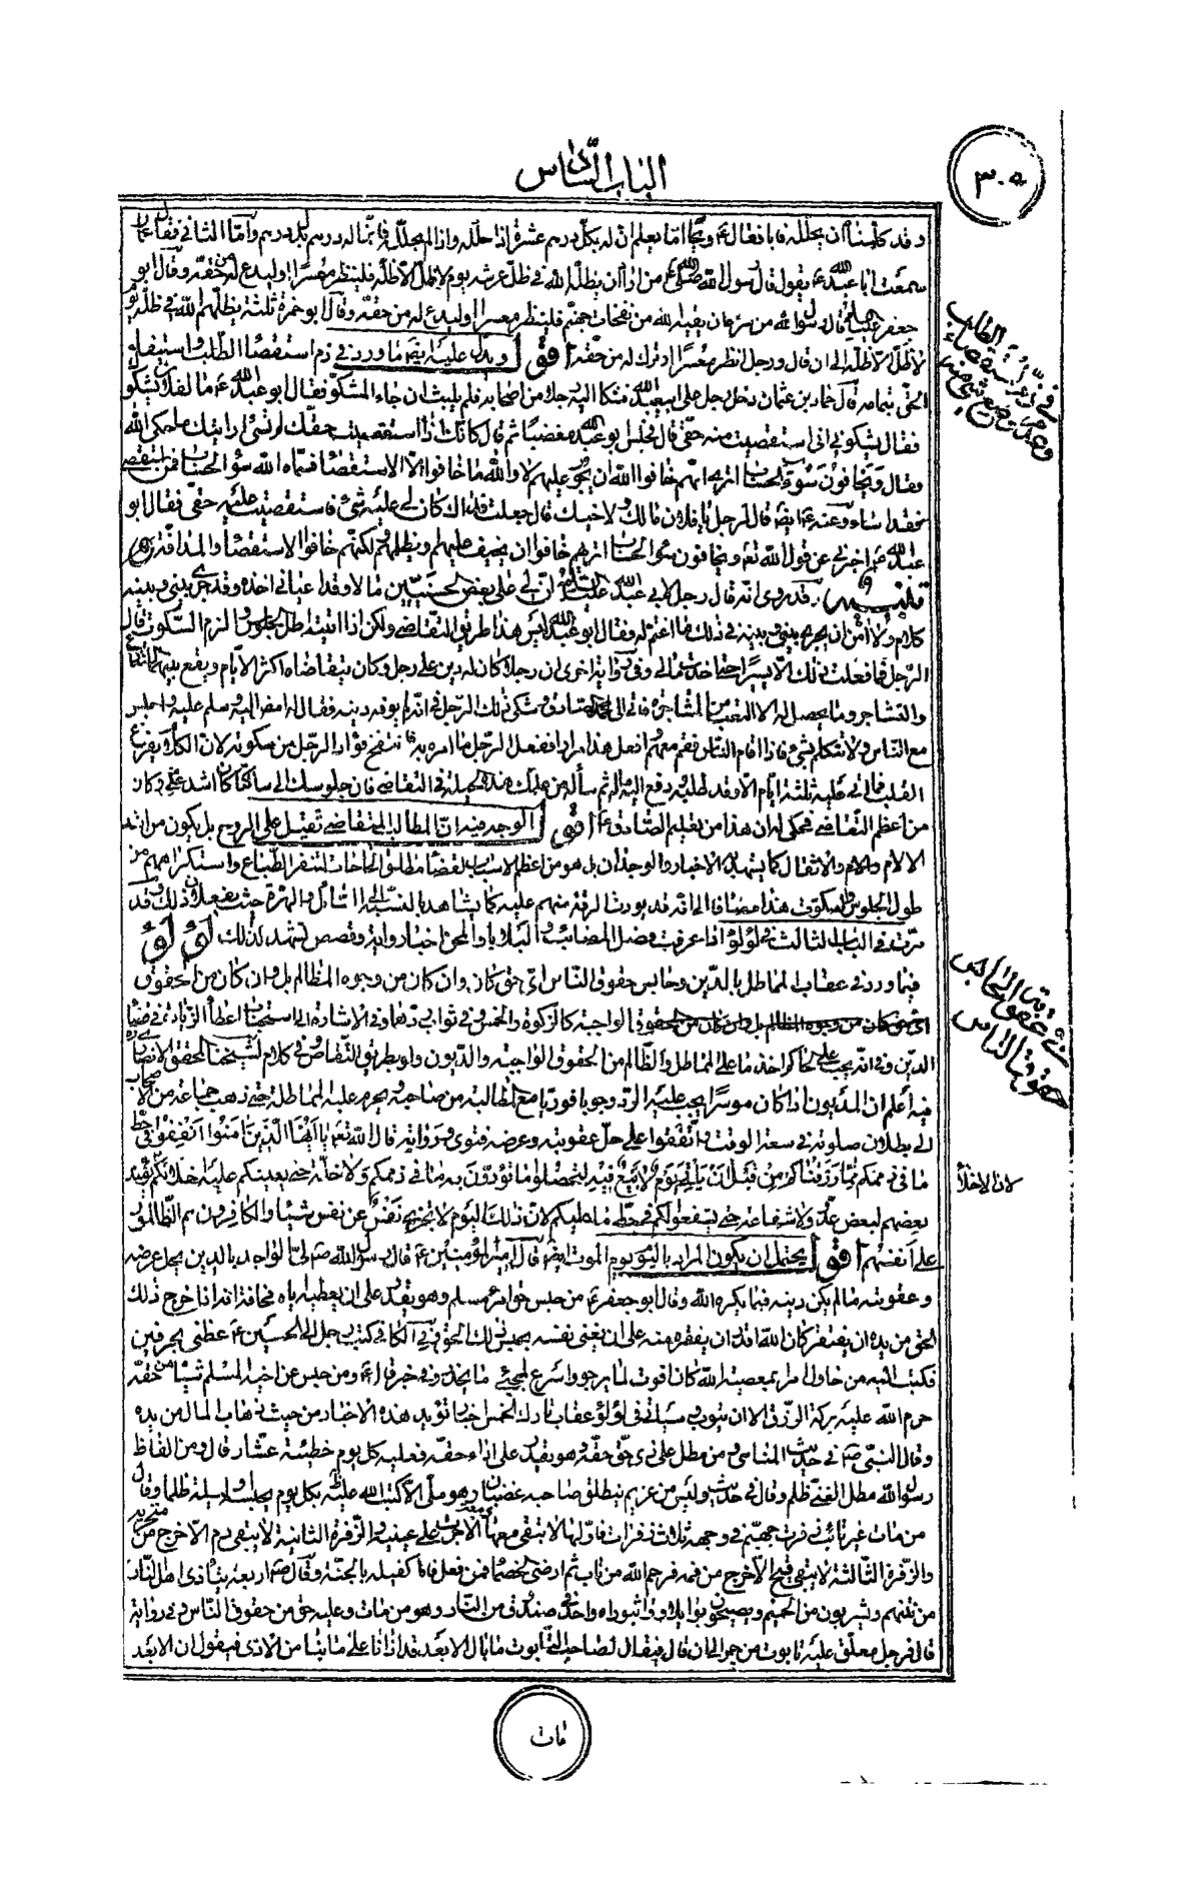 الباب السادس
٣٠٥
وقد كلمناه ان يحلله فابى فقال ويحه اما يعلم ان له بكل درهم عشرة اذا حلله واذا لم يحلله فانما له درهم بكل درهم واما الثاني فقال
سمعت ابا عبد الله يقول قال رسول الله من اراد ان يظله الله في ظل عرشه يوم لا ظل الا ظله فلينظر معسرا او ليدع له من حقه وقال ابو
جعفر قال رسول الله من سره ان يقيه الله من نفحات جهنم فلينظر معسرا او ليدع له من حقه وقال ابو حمزة ثلثة يظلهم الله في ظله يوم
لا ظل الا ظله الى ان قال ورجل انظر معسرا او ترك له من حقه اقول ويدل عليه ايضا ما ورد في ذم استقصاء الطلب واستيفاء
الحق بتمامه قال حماد بن عثمان دخل رجل على ابي عبد الله فشكا اليه رجلا من اصحابه فلم يلبث ان جاء المشكو فقال ابو عبد الله ما لفلان يشكوك
فقال يشكوني اني استقصيت منه حقي قال فجلس ابو عبد الله مغضبا ثم قال كانك اذا استقصيت حقك لم تسئ ارايتك ما حكى الله
فقال ويخافون سوء الحساب اترى انهم خافوا الله ان يجور عليهم لا والله ما خافوا الا الاستقصاء فسماه الله سوء الحساب فمن استقصى
فقد اساء وعنه ايضا قال لرجل يا فلان مالك ولاخيك قال جعلت فداك كان لي عليه شئ فاستقصيت عليه حقي فقال ابو
عبد الله اخبرني عن قول الله تعالى ويخافون سوء الحساب اتراهم خافوا ان يحيف عليهم ويظلمهم ولكنهم خافوا الاستقصاء والمداقة
تنبيه قد روى انه قال رجل لابي عبد الله ان لي على بعض الحسنيين مالا وقد اعياني اخذه وقد جرى بيني وبينه
كلام ولا آمن ان يجري بيني وبينه في ذلك ما اغتم له فقال ابو عبد الله ليس هذا طريق التقاضي ولكن اذا اتيته اطل الجلوس والزم السكوت قال
الرجل فما فعلت ذلك الا يسيرا حتى اخذت مالي وفي رواية اخرى ان رجلا كان له دين على رجل وكان يتقاضاه اكثر الايام ويقع بينهما
والتشاجر وما يحصل له الا التعب من المشاجرة فاتى الى الصادق وشكى ذلك الرجل في انه لم يوفه دينه فقال له امض اليه وسلم عليه واجلس
مع الناس ولا تتكلم بشئ فاذا قام الناس فقم معهم افعل هذا مرارا ففعل الرجل ما امره به فانتفخ فؤاد الرجل من سكوته لان الكلام يفرغ
القلب فما اتى عليه ثلثة ايام الا وقد طلبه ودفع اليه ماله ثم سأله من علمك هذه الحيلة في التقاضي فان جلوسك الي ساكتا كان اشد علي وكان
من اعظم التقاضي فحكى له ان هذا من تعليم الصادق اقول الوجه فيه ان المطالبة والتقاضي ثقيل على الروح بل يكون من اشد
الآلام والاثقال كما يشهد به الاخبار والوجدان بل هو من اعظم الاسباب لقضاء مطلق الحاجات لتنفر الطباع واستكراههم من
طول الجلوس والسكوت هذا مضافا الى انه قد يورث الرقة منهم عليه كما يشاهد بالنسبة الى السائل والهرة حيث يفعلان ذلك وقد
مرت في الباب الثالث في لؤلؤ اذا عرفت فضل المصائب والبلايا والمحن اخبار وافية وقصص تشهد لذلك لؤلؤ
فيما ورد في عقاب المماطل بالدين وحابس حقوق الناس اي حق كان وان كان من وجوه المظالم بل وان كان من الحقوق
الواجبة كالزكوة والخمس وفي ثواب ردها وفي الاشارة الى استحباب اعطاء الزيادة في قضاء
الدين وفي انه يجب على الحاكم اخذ ما على المماطل والظالم من الحقوق الواجبة والديون ولو بطريق التقاص وفي كلام لشيخنا المحقق الانصاري
فيه اعلم ان المديون اذا كان موسرا يجب عليه الرد وجوبا فوريا مع المطالبة من صاحبه ويحرم عليه المماطلة حتى ذهب جماعة من الاصحاب
الى بطلان صلوته في سعة الوقت واتفقوا على حل عقوبته وعرضه فتوى ورواية قال الله تعالى يا ايها الذين آمنوا انفقوا في حط
ما في ذمتكم مما رزقناكم من قبل ان ياتي يوم لا بيع فيه لتحصلوا ما تؤدون به ما في ذممكم ولا خلة حتى يعينكم عليه اخلائكم
لان الاخلاء
بعضهم لبعض عدو ولا شفاعة حتى يشفعوا لكم في حط ما عليكم لان ذلك اليوم لا تجزي نفس عن نفس شيئا والكافرون هم الظالمون
على انفسهم اقول يحتمل ان يكون المراد باليوم يوم الموت ايضا قال امير المؤمنين قال رسول الله لي الواجد بالدين يحل عرضه
وعقوبته ما لم يكن دينه فيما يكره الله وقال ابو جعفر من حبس حق امرء مسلم وهو يقدر على ان يعطيه اياه مخافة انه اذا خرج ذلك
الحق من يده ان يفتقر كان الله اقدر ان يفقره منه على ان يغني نفسه بحبس ذلك الحق وفي الكافي كتب رجل الى الحسين عظني بحرفين
فكتب اليه من حاول امرا بمعصية الله كان افوت لما يرجوا واسرع لمجئ ما يحذر وفي خبر قال ومن حبس عن اخيه المسلم شيئا من حقه
حرم الله عليه بركة الرزق الا ان يتوب وسياتي في لؤلؤ عقاب تارك الخمس اخبار تؤيد هذه الاخبار من حيث ذهاب المال من يده
وقال النبي في حديث المناهي ومن مطل على ذي حق حقه وهو يقدر على اداء حقه فعليه كل يوم خطيئة عشار قال ومن الفاظ
رسول الله مطل الغني ظلم وقال في حديث وليس من غريم ينطلق صاحبه غضبان وهو ملي الا كتب الله عليه بكل يوم يحبسه وليلة ظلما وقال
من مات غير تائب زفرت جهنم في وجهه ثلاث زفرات فاولها لا يبقى معها دمعة الا جرت على عينيه والزفرة الثانية لا يبقى دم الا خرج من منخريه
والزفرة الثالثة لا يبقى قيح الا خرج من فمه فرحم الله من تاب ثم ارضى الخصماء فمن فعل فانا كفيله بالجنة وقال اربعة يتاذى اهل النار
من نتنهم ويشربون من الحميم ويصيحون بواويلاه واثبوراه واحد في صندوق من النار وهو من مات وعليه حق من حقوق الناس وفي رواية
قال فرجل معلق عليه تابوت من جمر الى ان قال فيقال لصاحب التابوت ما بال الابعد قد اذانا على ما بنا من الاذى فيقول ان الابعد
مات